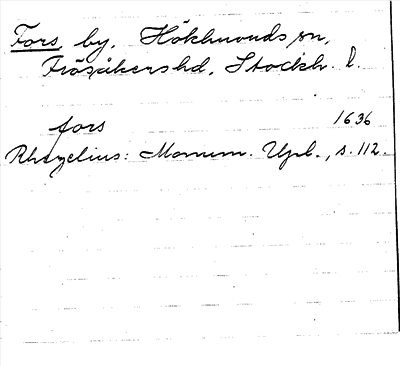 Fors by, Hökhuvuds sn,
Frösåkers hd, Stockh. l.
fors 1636
Rhezelius: Monum. Upl., s. 112.